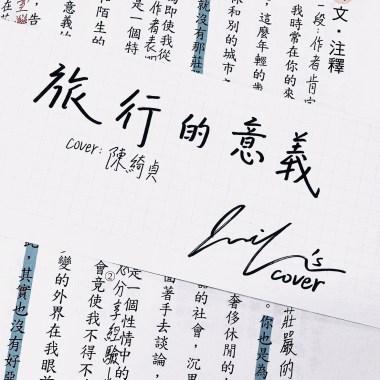 文・注釋
一段:作者肯定
我時常在你的來
這麼年輕的
和別的城市
就沒有那莊
作者表
即使我從
是一個特
和陌生的
意義的
告
旅行的意義
cover: 陳綺貞
's
cover
莊嚴的
你也是為
奢侈休閒的
的社會,沉
著手去談論,
是一個性情中的
②分享經驗
會竟使我不得不
變的外界在我眼前
其實也沒有好惡